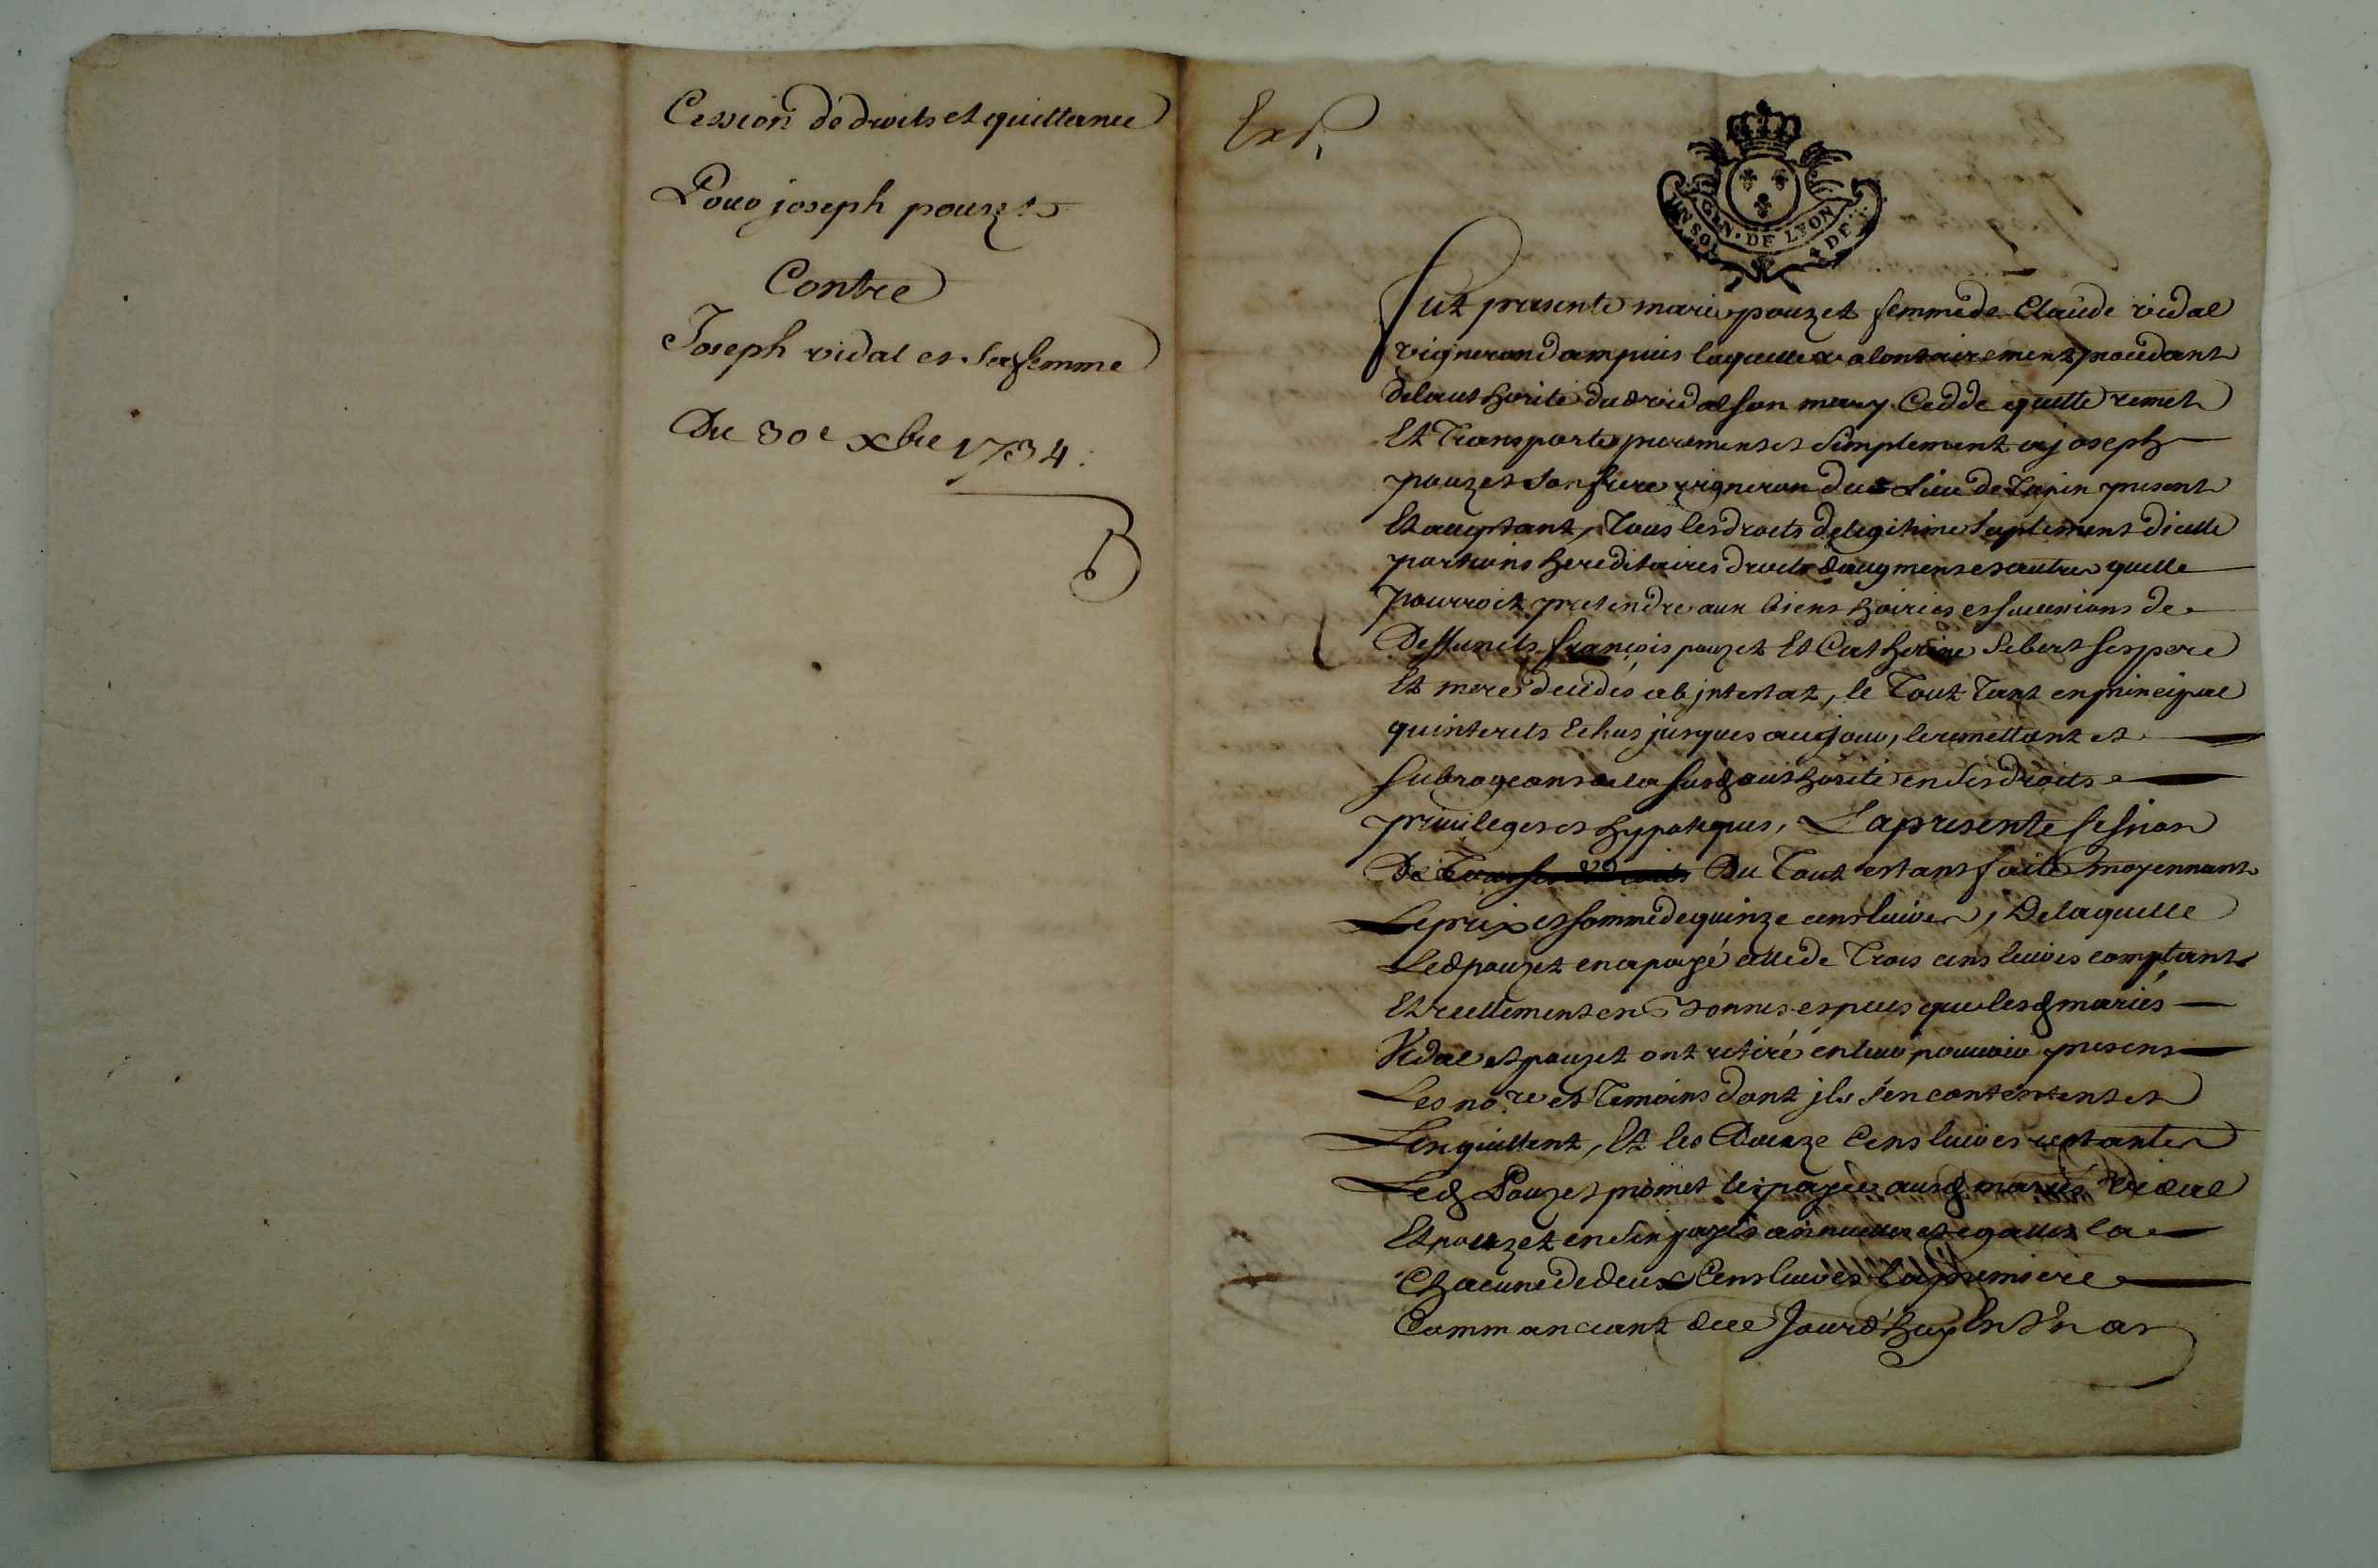 Cession de droits et quittance
Pour joseph pouzet
Contre
Joseph vidal et sa femme
Du 30e xbre 1734.
GEN. DE LYON
UN SOL DE
Fut presente marie pouzet femme de Claude vidal
vigneron dampuis laquelle volontairement procedant
de lauthorité dud vidal son mary Cedde quitte remet
Et Transporte purement et simplement a joseph
pouzet son frere vigneron du lieu de Tupin present
Et acceptant, Tous les droits de legitime suplement dicelle
portions hereditaires droits daugment et autres quelle
pourroit pretendre aux biens hoiries et successions de
Deffuncts françois pouzet Et Catherine Sibert ses pere
Et mere decedés ab jntestat, le Tout Tant en principal
quinterets Echus jusques a cejour, le remettant et
subrogeant de la susd authorité en ses droits
privileges et hypoteques, La presente session
De Du Tout estant faite moyennant
Le prix et somme de quinze cens livres, De laquelle
Led pouzet en a payé celle de Trois cens livres comptant
Et reellement en bonnes especes que lesd mariés
Vidal et pouzet ont retiré en leur pouvoir presens
Les nore et Temoins dont jls sen contentent et
Len quittent, Et les Douze Cens livres restantes
Led Pouzet promet les payer ausd mariés Vidal
Et pouzet en six payes annuelles et egalles la
Chacune de deux Cens livres la premiere
Commanceant de ce Jourd'huy En Un an